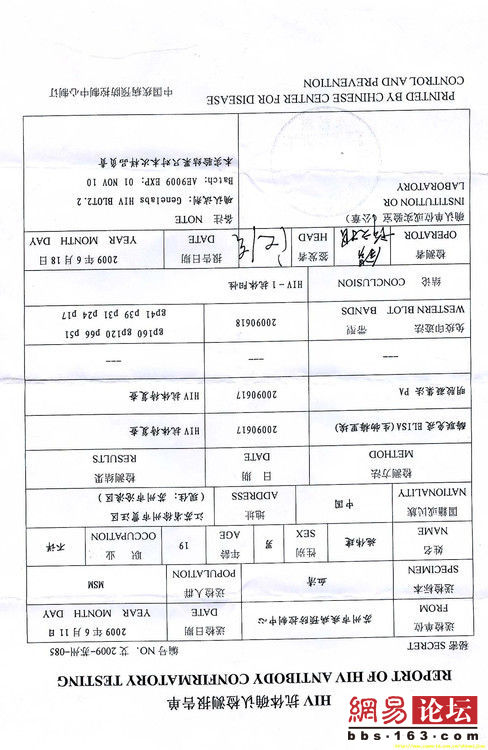 HIV 抗体确认检测报告单
REPORT OF HIV ANTIBODY CONFIRMATORY TESTING
秘密 SECRET 编号 NO. 艾 2009-苏州-085
送检单位 FROM 苏州市疾病预防控制中心 送检日期 DATE 2009 年 6 月 11 日 YEAR MONTH DAY
送检标本 SPECIMEN 血清 送检人群 POPULATION MSM
姓名 NAME 性别 SEX 男 年龄 AGE 19 职业 OCCUPATION 不详
国籍或民族 NATIONALITY 中国 地址 ADDRESS 江苏省徐州市贾汪区
(现住: 苏州市沧浪区)
检测方法 METHOD 日期 DATE 检测结果 RESULTS
酶联免疫 ELISA(生物梅里埃) 20090617 HIV 抗体待复查
明胶凝集法 PA 20090617 HIV 抗体待复查
--- --- ---
免疫印迹法 带型 WESTERN BLOT BANDS 20090618 gp160 gp120 p66 p51
gp41 p39 p31 p24 p17
结论 CONCLUSION HIV-1 抗体阳性
检测者 OPERATOR 签发者 HEAD 报告日期 DATE 2009 年 6 月 18 日 YEAR MONTH DAY
确认单位或实验室 (公章)
INSTITUTION OR
LABORATORY
备注 NOTE
确认试剂: Genelabs HIV BLOT2.2
Batch: AE9009 EXP: 01 NOV 10
本实验结果只对本次样品负责
PRINTED BY CHINESE CENTER FOR DISEASE
CONTROL AND PREVENTION
中国疾病预防控制中心制订
網易论坛
bbs·163.com